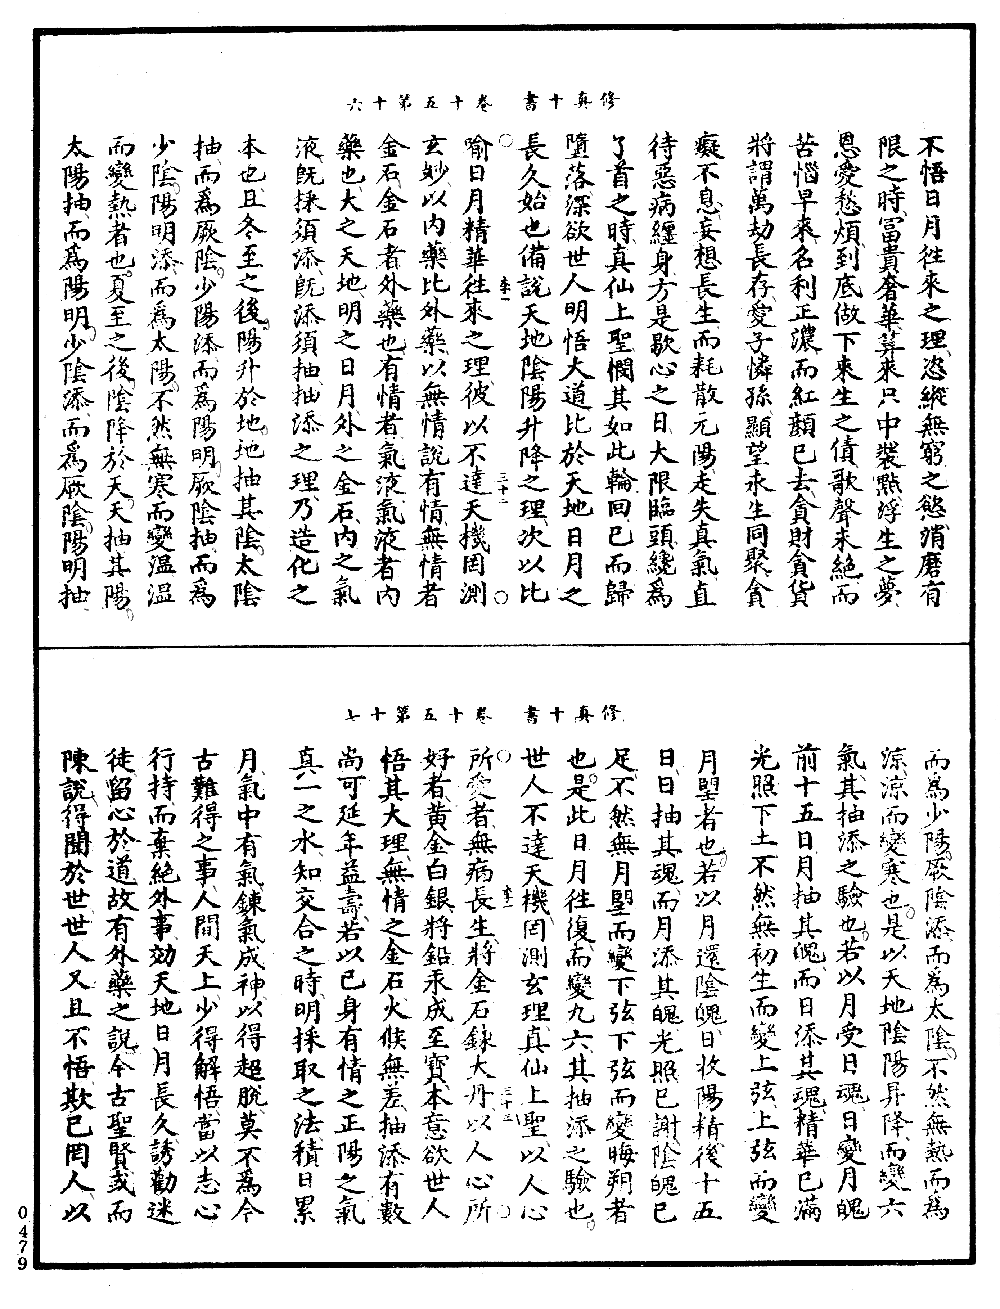 修真十書　卷十五第十六
不悟日月往來之理恣縱無窮之慾消磨有
限之時富貴奢華筭來只中裝點浮生之夢
恩愛愁煩到底做下來生之債歌聲未絕而
苦惱早來名利正濃而紅顏已去貪財貪貨
將謂萬劫長存愛子憐孫顯望永生同聚貪
癡不息妄想長生而耗散元陽走失真氣直
待惡病纏身方是歇心之日大限臨頭纔為
了首之時真仙上聖憫其如此輪回已而歸
墮落深欲世人明悟大道比於天地日月之
長久始也備說天地陰陽升降之理次以比
喻日月精華往來之理彼以不達天機罔測
玄妙以內藥比外藥以無情說有情無情者
金石金石者外藥也有情者氣液氣液者內
藥也大之天地明之日月外之金石內之氣
液既採須添既添須抽抽添之理乃造化之
本也且冬至之後陽升於地地抽其陰太陰
抽而為厥陰少陽添而為陽明厥陰抽而為
少陰陽明添而為太陽不然無寒而變溫溫
而變熱者也夏至之後陰降於天天抽其陽
太陽抽而為陽明少陰添而為厥陰陽明抽
修真十書　卷十五第十七
而為少陽厥陰添而為太陰不然無熱而為
涼涼而變寒也是以天地陰陽昇降而變六
氣其抽添之驗也若以月受日魂日變月魄
前十五日月抽其魄而日添其魂精華已滿
光照下土不然無初生而變上弦上弦而變
月望者也若以月還陰魄日收陽精後十五
日日抽其魂而月添其魄光照已謝陰魄已
足不然無月望而變下弦下弦而變晦朔者
也是此日月往復而變九六其抽添之驗也
世人不達天機罔測玄理真仙上聖以人心
所愛者無病長生將金石鍊大丹以人心所
好者黃金白銀將鉛汞成至寶本意欲世人
悟其大理無情之金石火候無差抽添有數
尚可延年益壽若以已身有情之正陽之氣
真一之水知交合之時明採取之法積日累
月氣中有氣鍊氣成神以得超脫莫不為今
古難得之事人間天上少得解悟當以志心
行持而棄絕外事効天地日月長久誘勸迷
徒留心於道故有外藥之說今古聖賢或而
陳說得聞於世世人又且不悟欺已罔人以
0479